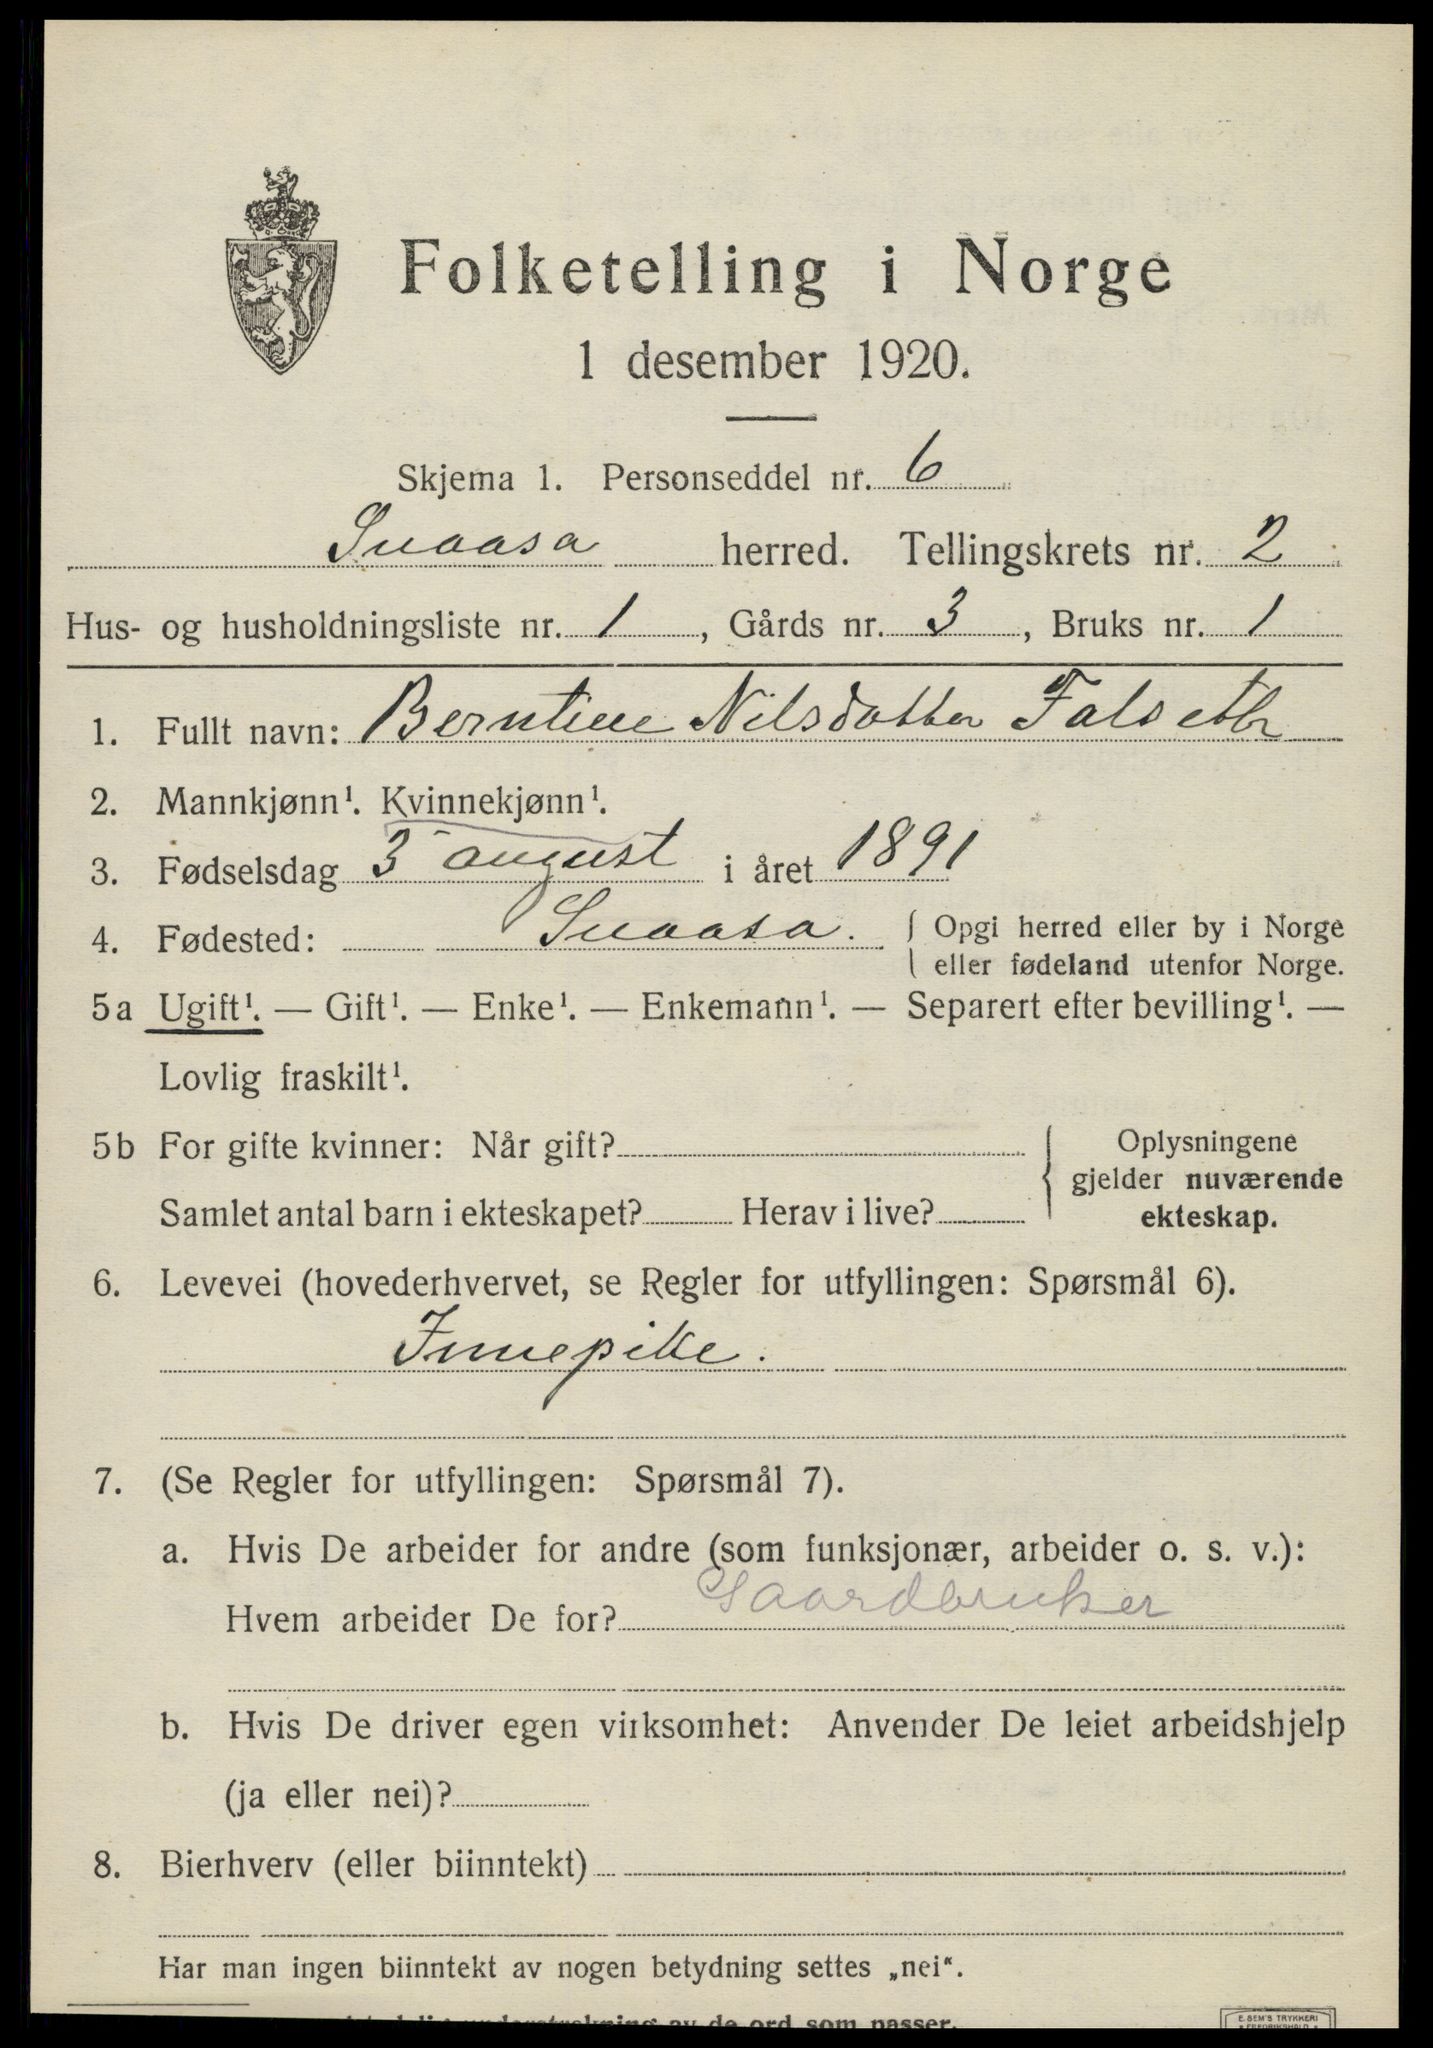 Folketelling i Norge
1 desember 1920.
Skjema 1. Personseddel nr. 6
Snaasa herred. Tellingskrets nr. 2
Hus- og husholdningsliste nr. 1, Gårds nr. 3, Bruks nr. 1
1. Fullt navn: Berntine Nilsdatter
2. Mannkjønn¹. Kvinnekjønn¹.
3. Fødselsdag 3 august i året 1891
4. Fødested: Snaasa. { Opgi herred eller by i Norge
eller fødeland utenfor Norge.
5a Ugift¹. — Gift¹. — Enke¹. — Enkemann¹. — Separert efter bevilling¹. —
Lovlig fraskilt¹.
5b For gifte kvinner: Når gift? { Oplysningene
gjelder nuværende
Samlet antal barn i ekteskapet? Herav i live? ekteskap.
6. Levevei (hovederhvervet, se Regler for utfyllingen: Spørsmål 6).
Innepike.
7. (Se Regler for utfyllingen: Spørsmål 7).
a. Hvis De arbeider for andre (som funksjonær, arbeider o. s. v.):
Hvem arbeider De for? Gaardbruker
b. Hvis De driver egen virksomhet: Anvender De leiet arbeidshjelp
(ja eller nei)?
8. Bierhverv (eller biinntekt)
Har man ingen biinntekt av nogen betydning settes „nei“.
understrekning av de ord som passer.
E. SEM'S TRYKKERI
FREDRIKSHALD